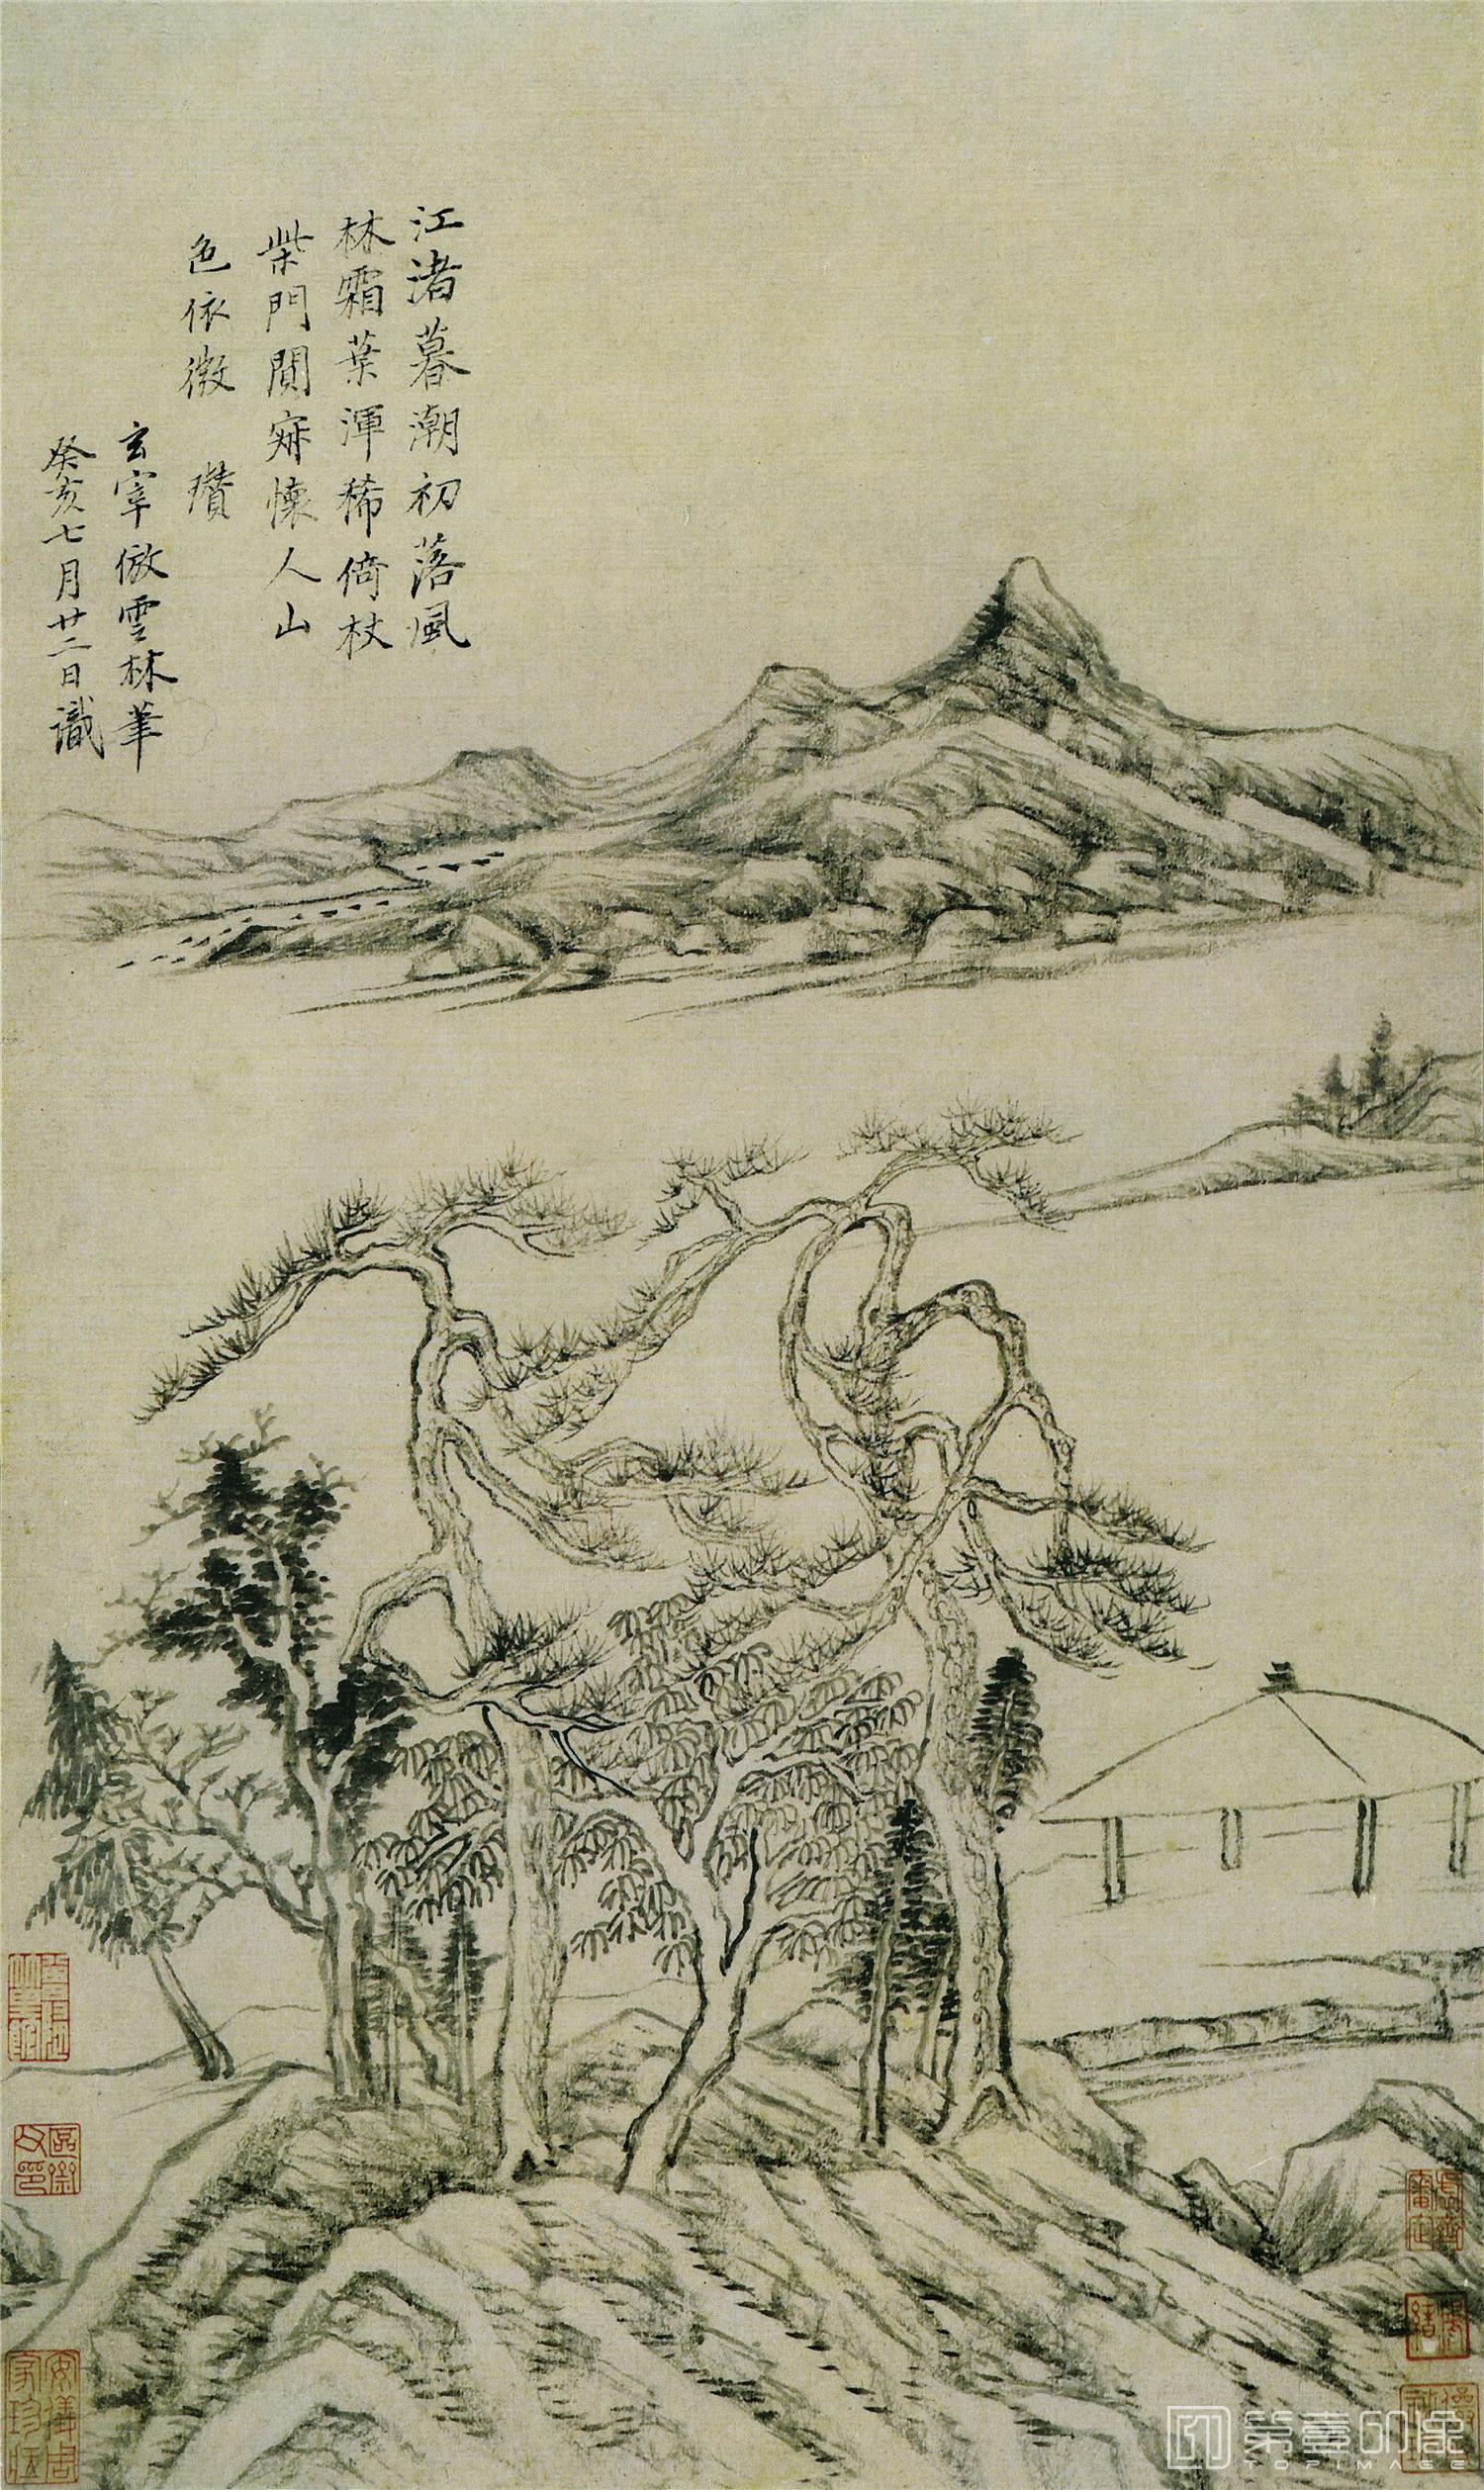 江渚暮潮初落風
林霜葉渾稀倚杖
柴門闃寂懷人山
色依微 瓚
玄宰倣雲林筆
癸亥七月廿二日識
第壹印象
TOPIMAGE